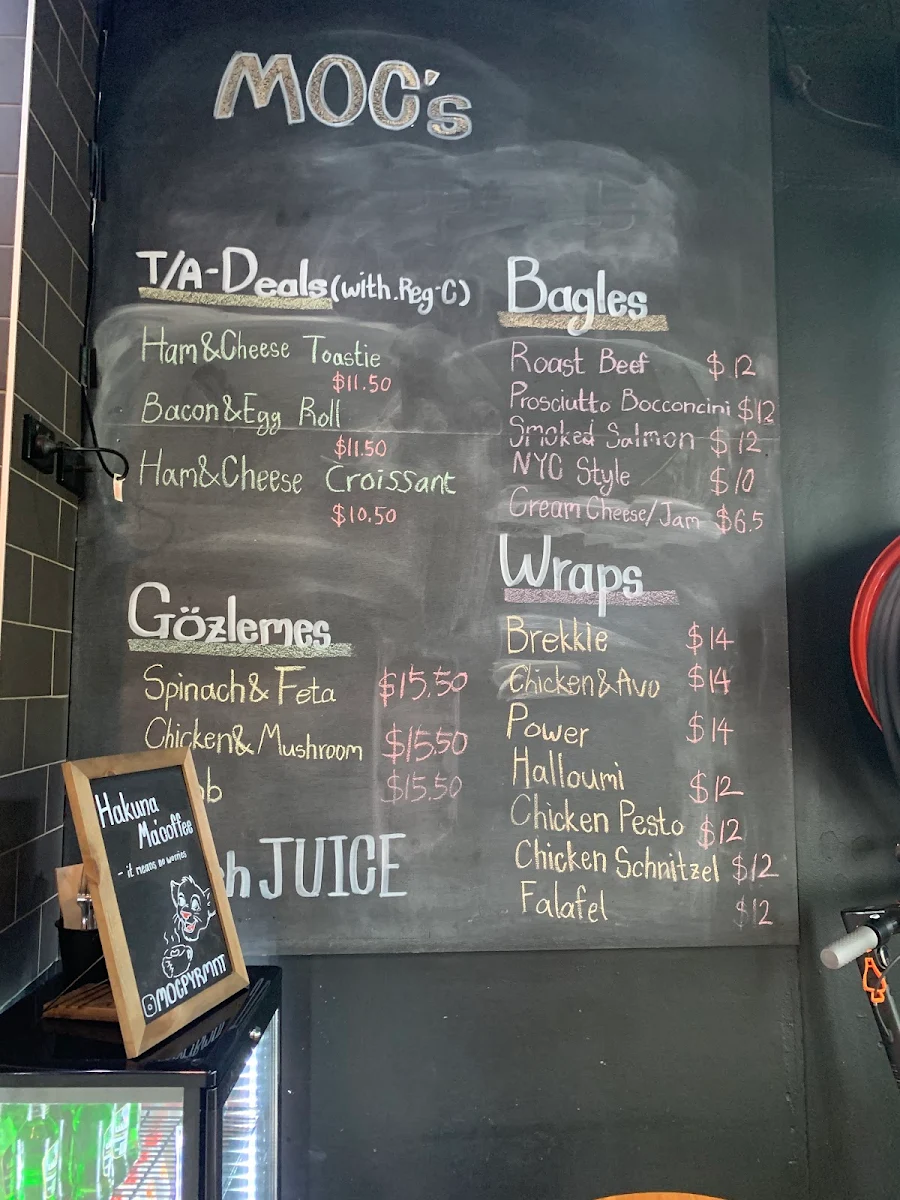 MOC's
T/A-Deals (with.Reg-C)
Ham&Cheese Toastie
$11.50
Bacon&Egg Roll
$11.50
Ham&Cheese Croissant
$10.50
Gözlemes
Spinach& Feta $15.50
Chicken& Mushroom $15.50
$15.50
JUICE
Bagles
Roast Beef $12
Prosciutto Bocconcini $12
Smoked Salmon $12
NYC Style $10
Cream Cheese/Jam $6.5
Wraps
Brekkie $14
Chicken&Avo $14
Power $14
Halloumi $12
Chicken Pesto $12
Chicken Schnitzel $12
Falafel $12
Hakuna
Ma'coffee
- it means no worries
@MOCPYRMNT